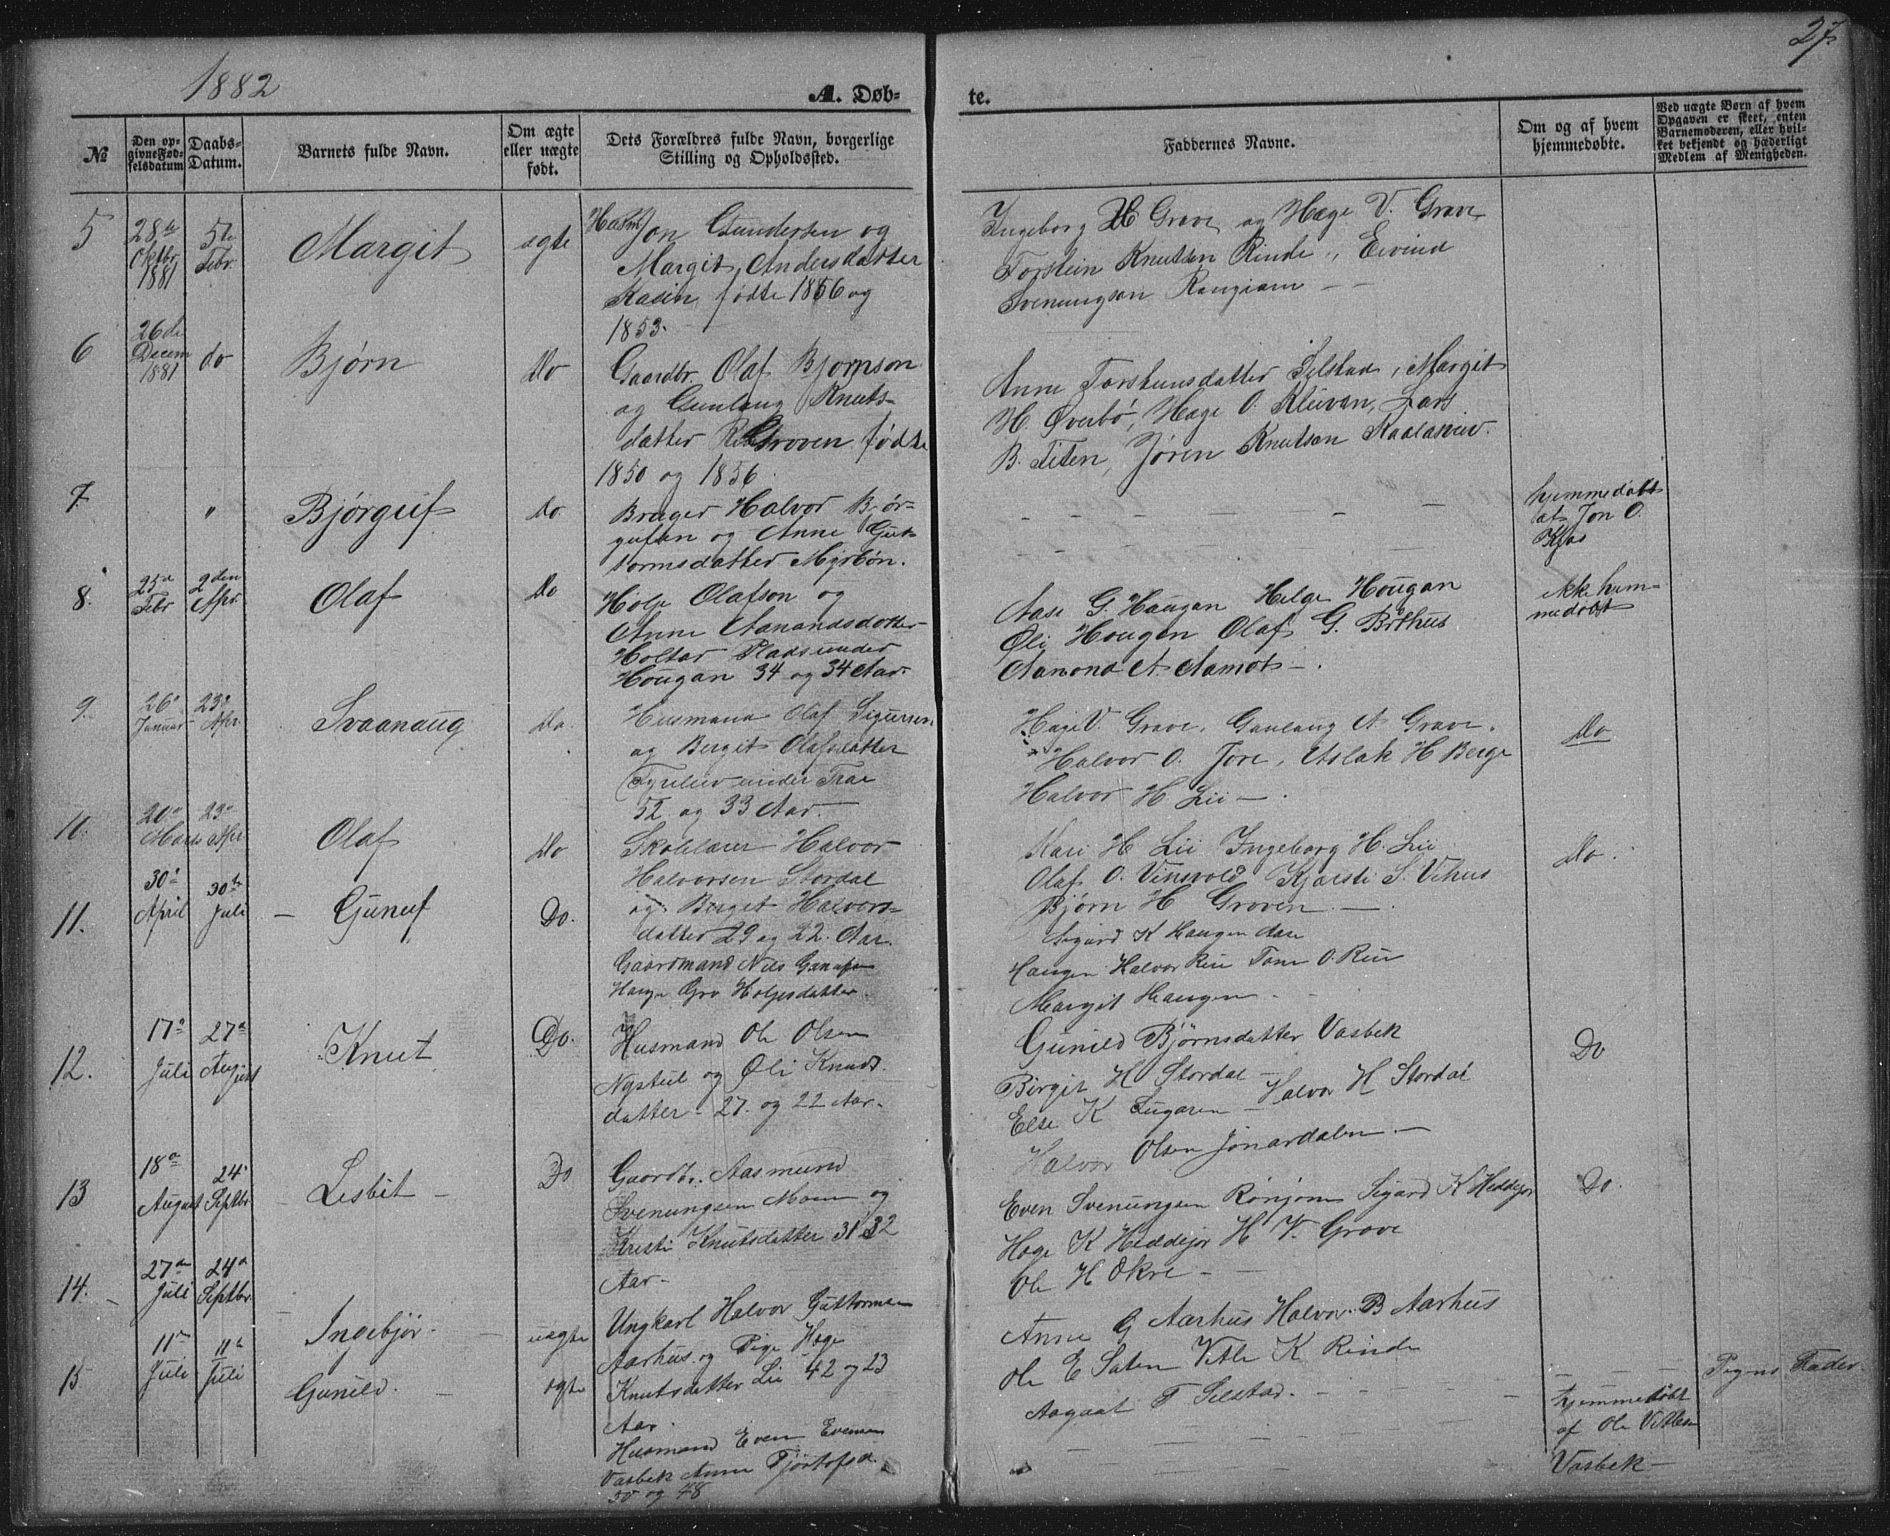 1882
27
A. Døb-
te.
№
Den op-
givne Fød-
selsdatum
Daabs-
Datum.
Barnets fulde Navn.
Om ægte
eller uægte
født.
Dets Forældres fulde Navn, borgerlige
Stilling og Opholdssted.
Faddernes Navne.
Om og af hvem
hjemmedøbte.
Ved uægte Børn af hvem
Opgaven er skeet, enten
Barnemoderen, eller hvil-
ket bekjendt og hæderligt
Medlem af Menigheden.
5
28de
Oktbr
1881
5te
Febr.
Margit
ægte
Husm Jon Gundersen og
Margit Andersdatter
fødte 1856 og
1853.
Ingeborg H Grave og Hæge V. Grave
Torstein Knutsen Rinde, Eivind
Svenungson
6
26de
Decem
1881
do
Bjørn
Do
Gaardbr Olaf Bjørnson
og Gunlaug Knuts-
datter Groven fødte
1850 og 1856.
Anne Torsteinsdatter Selstad, Margit
H. Øverbö, Hæge O. Kleivan, Lars
B. Teten, Jøren Knutson
7.
"
Bjørguf
Do
Bruger Halvor Bjør-
gufsen og Anne Gut-
tormsdatter Myrbøn.
hjemmedøbt
af Jon O.
Kjos
8.
25de
Febr
2den
Apr.
Olaf
Do
Holje Olafson og
Anne Aanandsdatter
Holtar Plads under
Hougan 34 og 34 Aar.
Aase G. Haugan Helge Hougan
Øli Hougen Olaf G. Böthus
Aamond A. Aamot.
ikke hjem-
medøbt
9.
26
Januar
23
Apr.
Svaanaug
Do.
Husmand Olaf Sigursen
og Bergit Olafsdatter
Tyreliev under Trae
52 og 33 Aar.
Hæge V. Grave, Gunlaug A Grave.
Halvor O. Jore, Aslak H Berge
Halvor H Lii
Do
11.
20
Marts
23
Apr
Olaf
Do
Skolelærer Halvor
Halvorsen Stordal
og Berget Halvors-
datter 29 og 22. Aar.
Kari H Lii Ingeborg H. Lii
Olaf O. Vinsvold Kjersti S. Vehus
Bjørn H Groven
Do.
11.
30
April
30te
Juli
Gunuf
Do.
Gaardmand Nils
Haugen Gro Holjesdatter
Sigurd K Haugen Aase
Haugen Halvor Rui Tone O. Rui
Margit Haugen
12.
17
Juli
27
August
Knut
Do.
Husmand Ole Olsen
Nysteil og Øli Knuds
datter 27. og 22 Aar.
Gunild Bjørnsdatter Vasbek
Birgit H Stordal
Else K Tugaren Halvor H Stordal
Halvor Olsen Jönardalen
Do
13
18
August
24
Septbr.
Lisbit
Do
Gaardbr. Aasmund
Svenungsen Moen og
Kristi Knutsdatter 31 32
Aar.
Even Svenungsen Rønjom Sigurd K Heddejor
Hæge K Heddejor H V. Grave
Ole H Økre
Do.
14.
27de
Juli
24
Septbr.
Ingebjør
uægte
Ungkarl Halvor Guttormsen
Aarhus og Pige Hæge
Knutsdatter Lii 42 og 23
Aar.
Anne G Aarhus Halvor B Aarhus
Ole E Saten Vetle K Rinde
Aagaat T Selstad.
Pigens Fader.
15
11
Juli
11
Juli
Gunild.
ægte
Husmand Even Evensen
Vasbek Anne Tjøstofsd.
50 og 48
hjemmedøbt
af Ole Vetlesen
Vasbek